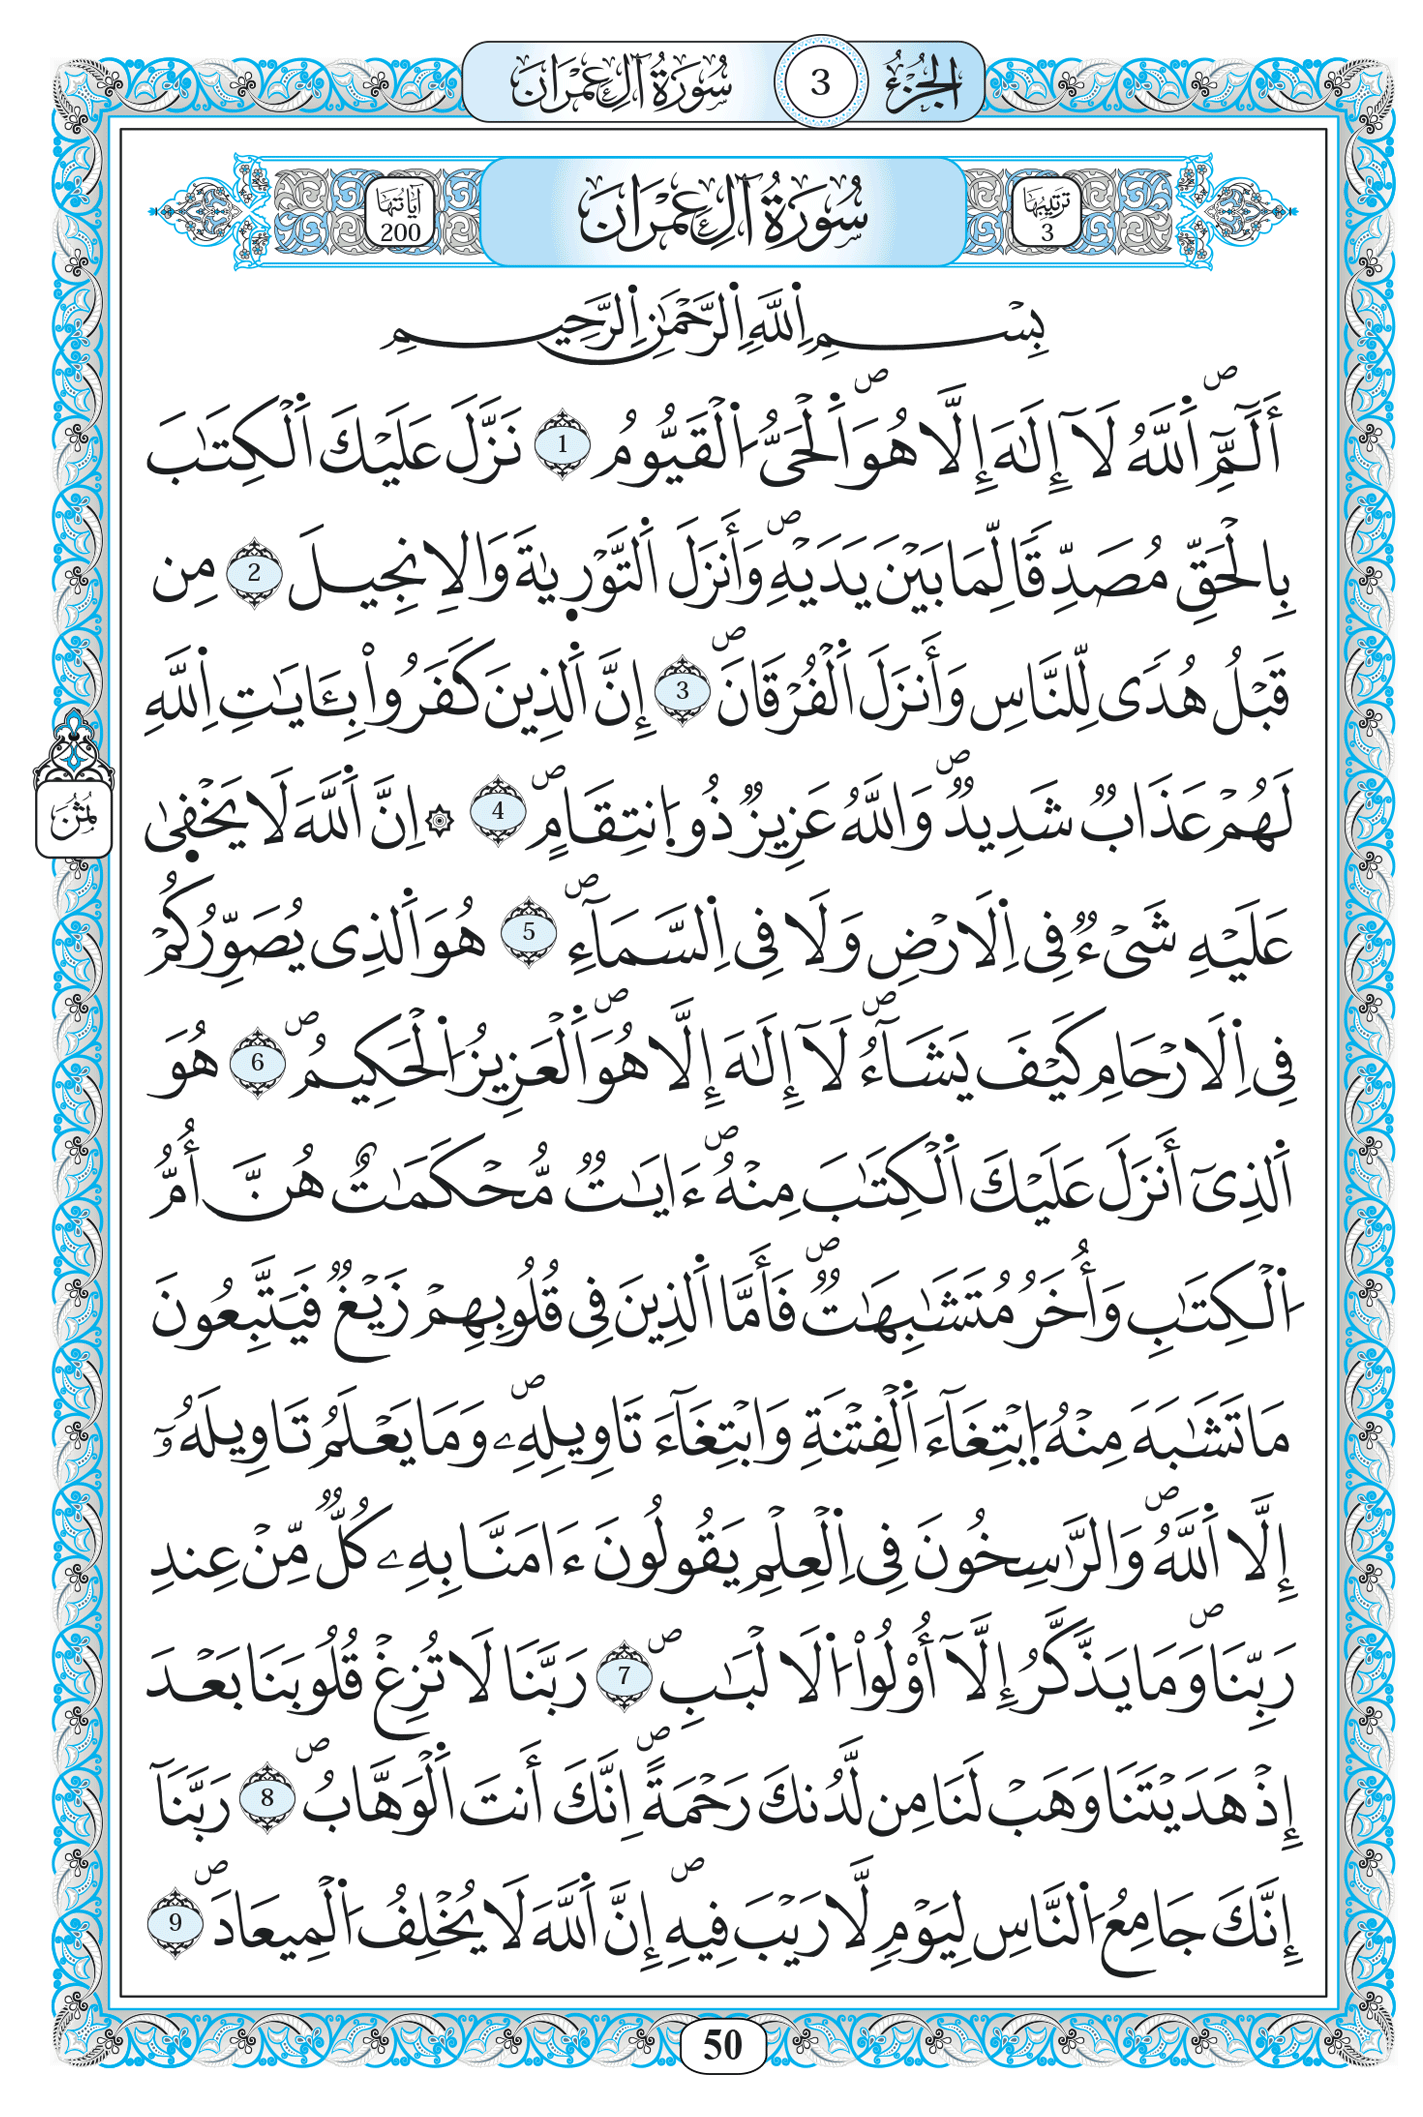 الجُزْءُ 3 سُورَةُ آلِ عِمْرَانَ
تَرْتِيبُهَا 3 سُورَةُ آلِ عِمْرَانَ آيَاتُهَا 200
بِسْمِ اِ۬للَّهِ اِ۬لرَّحْمَٰنِ اِ۬لرَّحِيمِ
أَلَٓمِّٓۖ اَ۬للَّهُ لَآ إِلَٰهَ إِلَّا هُوَۖ اَ۬لْحَيُّ اُ۬لْقَيُّومُ 1 نَزَّلَ عَلَيْكَ اَ۬لْكِتَٰبَ
بِالْحَقِّ مُصَدِّقاٗ لِّمَا بَيْنَ يَدَيْهِۖ وَأَنزَلَ اَ۬لتَّوْر۪يٰةَ وَالِانجِيلَ 2 مِن
قَبْلُ هُدىٗ لِّلنَّاسِ وَأَنزَلَ اَ۬لْفُرْقَانَۖ 3 إِنَّ اَ۬لذِينَ كَفَرُواْ بِـَٔايَٰتِ اِ۬للَّهِ
لَهُمْ عَذَابٞ شَدِيدٞۖ وَاللَّهُ عَزِيزٞ ذُو اُ۪نتِقَامٍۖ 4 ۞ اِنَّ اَ۬للَّهَ لَا يَخْف۪يٰ
لثُمُنُ
عَلَيْهِ شَيْءٞ فِي اِ۬لَارْضِ وَلَا فِي اِ۬لسَّمَآءِۖ 5 هُوَ اَ۬لذِي يُصَوِّرُكُمْ
فِي اِ۬لَارْحَامِ كَيْفَ يَشَآءُۖ لَآ إِلَٰهَ إِلَّا هُوَۖ اَ۬لْعَزِيزُ اُ۬لْحَكِيمُۖ 6 هُوَ
اَ۬لذِيٓ أَنزَلَ عَلَيْكَ اَ۬لْكِتَٰبَ مِنْهُۖ ءَايَٰتٞ مُّحْكَمَٰتٌ هُنَّ أُمُّ
اُ۬لْكِتَٰبِ وَأُخَرُ مُتَشَٰبِهَٰتٞۖ فَأَمَّا اَ۬لذِينَ فِي قُلُوبِهِمْ زَيْغٞ فَيَتَّبِعُونَ
مَا تَشَٰبَهَ مِنْهُ اُ۪بْتِغَآءَ اَ۬لْفِتْنَةِ وَابْتِغَآءَ تَاوِيلِهِۦۖ وَمَا يَعْلَمُ تَاوِيلَهُۥٓ
إِلَّا اَ۬للَّهُۖ وَالرَّٰسِخُونَ فِي اِ۬لْعِلْمِ يَقُولُونَ ءَامَنَّا بِهِۦ كُلّٞ مِّنْ عِندِ
رَبِّنَاۖ وَمَا يَذَّكَّرُ إِلَّآ أُوْلُواْ اُ۬لَالْبَٰبِۖ 7 رَبَّنَا لَا تُزِغْ قُلُوبَنَا بَعْدَ
إِذْ هَدَيْتَنَا وَهَبْ لَنَا مِن لَّدُنكَ رَحْمَةًۖ اِنَّكَ أَنتَ اَ۬لْوَهَّابُۖ 8 رَبَّنَآ
إِنَّكَ جَامِعُ اُ۬لنَّاسِ لِيَوْمٖ لَّا رَيْبَ فِيهِۖ إِنَّ اَ۬للَّهَ لَا يُخْلِفُ اُ۬لْمِيعَادَۖ 9
50